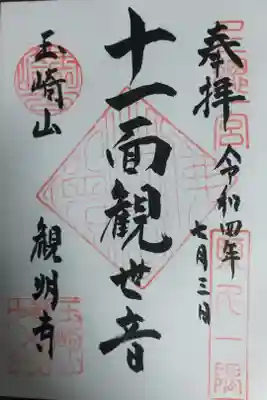 奉拝
令和四年
七月三日
十一面観世音
玉崎山
観明寺